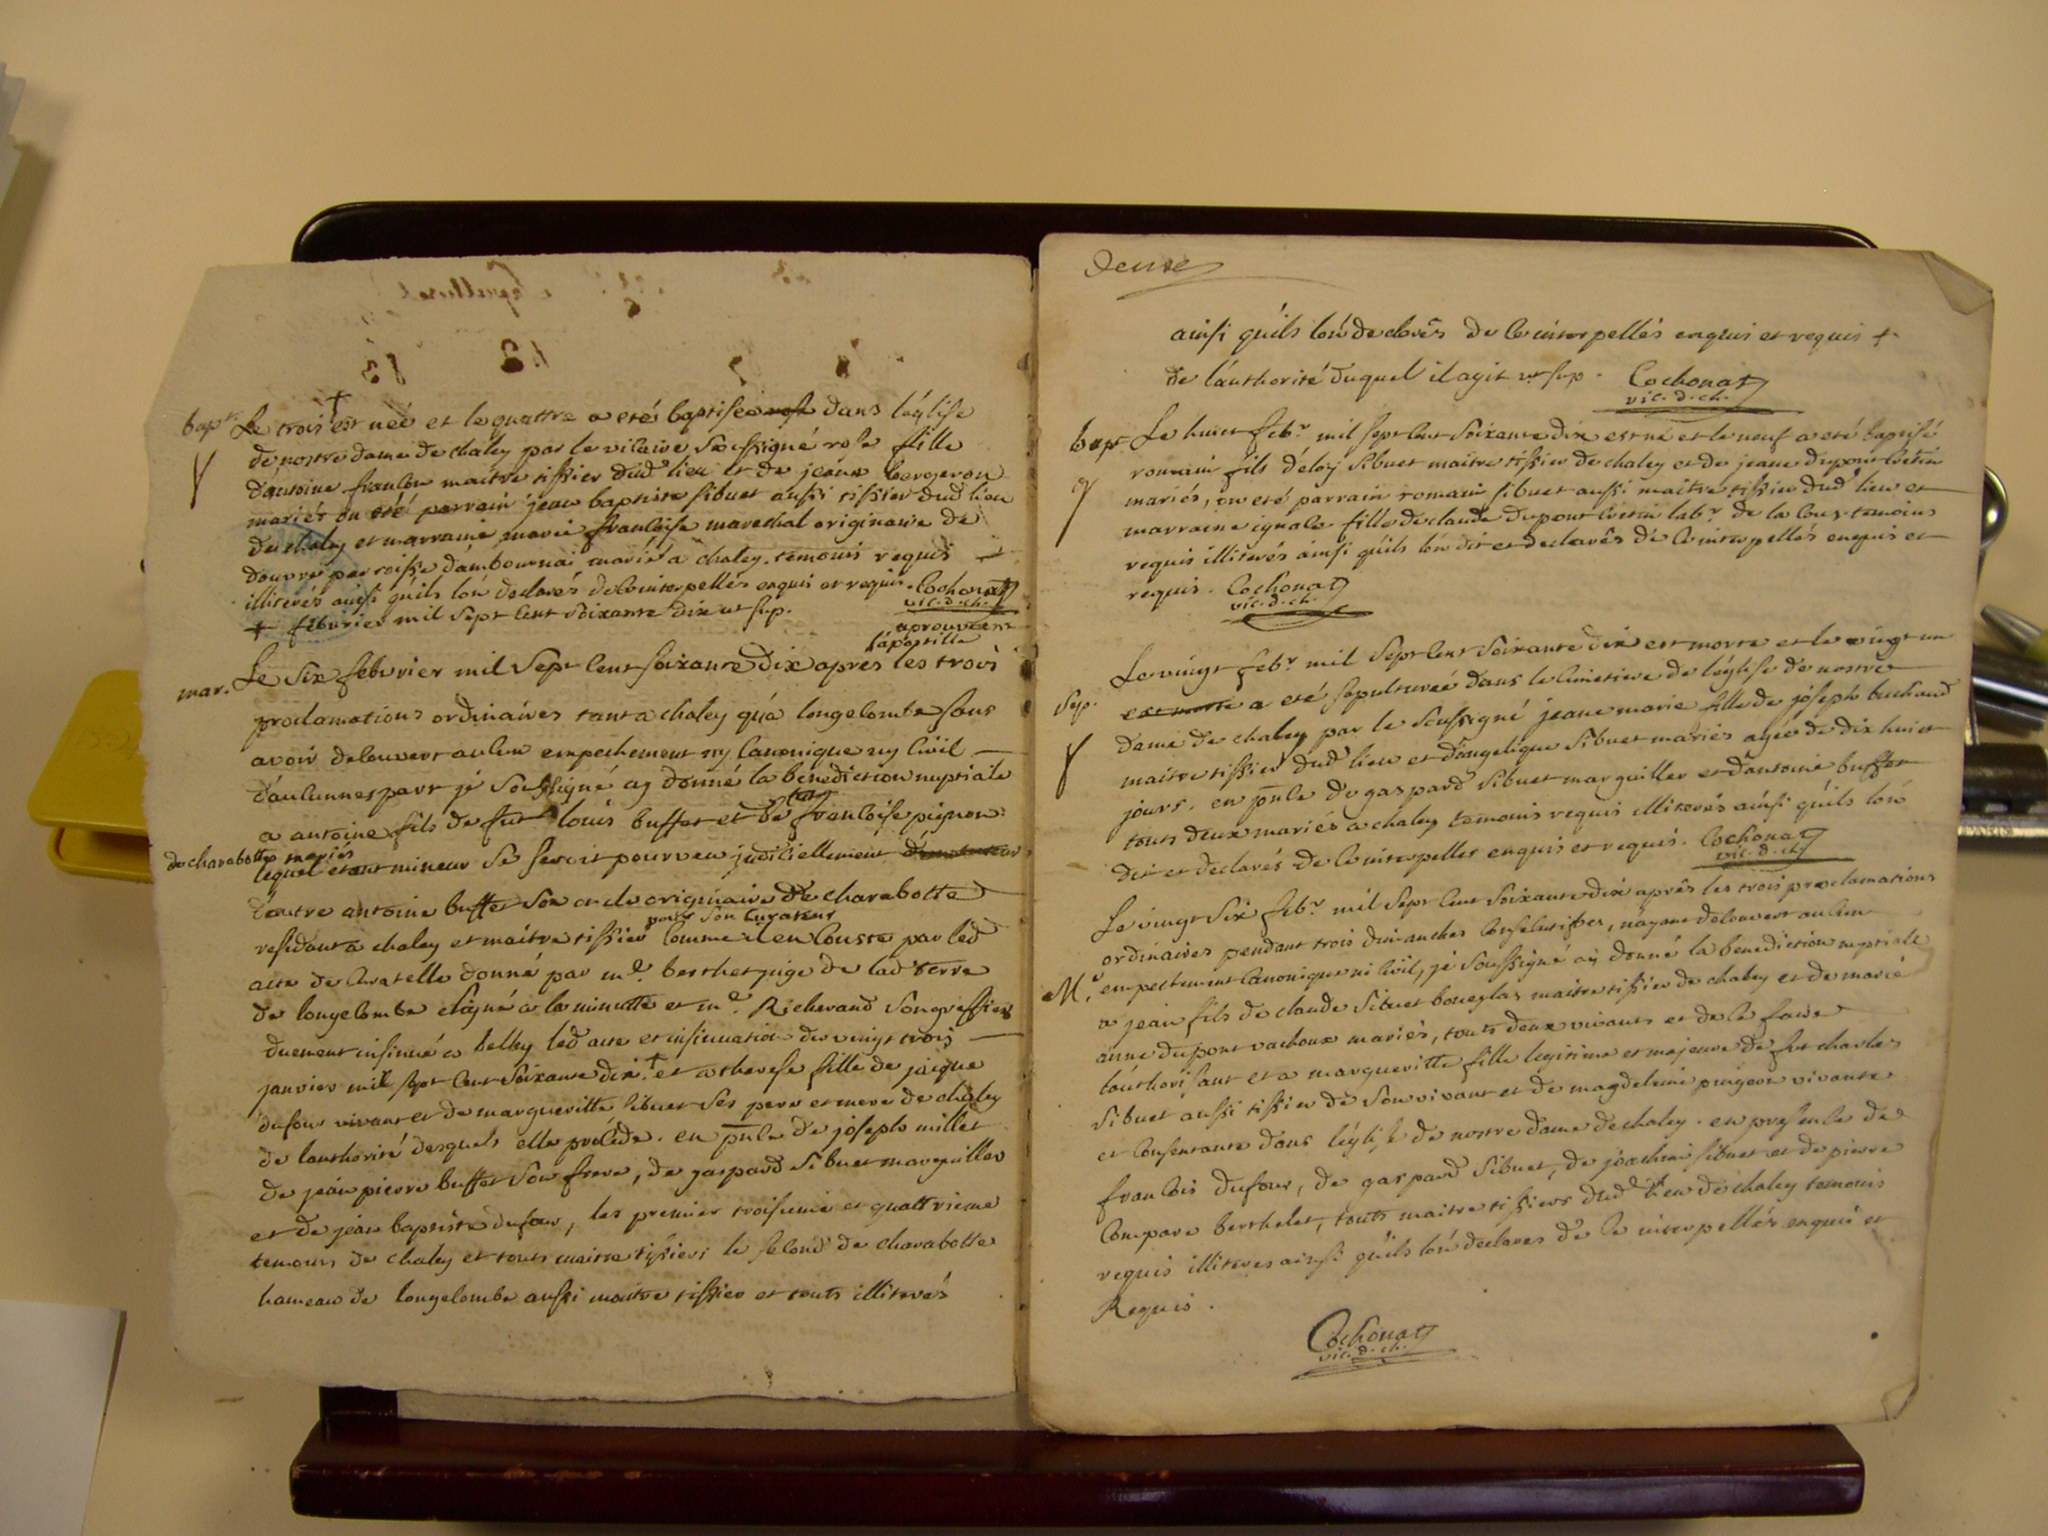 bapt. Le trois † est neé et le quattre a etés baptisée dans léglise
de nostre dame de chaley par le vicaire soussigné rose fille
dantoine françon maitre tissier dud lieu et de jeane bergeron
mariés on été parrain jean baptiste sibuet aussi tissier dud lieu
de chaley et marraine marie françoise mareschal originaire de
douvre parroisse dambournai mariée a chaley. temoins requis
illiterés ainsi quils lon declarés de ce interpellés enquis et requis. Cochonat
vic. d. ch.
† feburier mil sept cent soixante dix ut sup.
aprouvant
lapostille
mar. Le six feburier mil sept cent soixante dix apres les trois
proclamations ordinaires tant a chaley qua longecombe sans
avoir decouvert aucun empechement ny canonique ny civil
daucunnes part je soussigné ay donné la benediction nuptiale
a antoine fils de fut louis buffet et de françoise pignon
de charabotte mariés
lequel etant mineur se seroit pourveu judiciellement
lautre antoine buffet son oncle originaire de charabotte
pour son curateur
residant a chaley et maitre tissier comme il en couste par led
acte de curatelle donné par me. berthet juge de lad terre
de longecombe signé a la minutte et me. Richerand son greffier
duement insinué a belley led acte et insinuation du vingt trois
janvier mil sept cent soixante dix. † et a therese fille de jaique
dufour vivant et de margueritte sibuet ses pere et mere de chaley
de lauthorité desquels elle procede. en pnce de joseph millet
de jean pierre buffet son frere, de gaspard sibuet marguiller
et de jean baptiste dufour, les premier troisieme et quattrieme
temoins de chaley et touts maitre tissiers le second de charabotte
hameau de longecombe aussi maitre tissier et touts illiterés
Deuxe
ainsi quils lon declarés de ce interpellés enquis et requis †
de lauthorité duquel il agit ut sup. Cochonat
vic. d. ch.
bapt. Le huict febr. mil sept cent soixante dix est né et le neuf a eté baptisé
romain fils deloy sibuet maitre tissier de chaley et de jeane dupont cretin
mariés, on eté parrain romain sibuet aussi maitre tissier dud lieu et
marraine fille de claude dupont cretin labr. de la temoins
requis illiterés ainsi quils lon dit et declarés de ce interpellés enquis et
requis. Cochonat
vic. d. ch.
Le vingt febr. mil sept cent soixante dix est morte et le vingt un
sep. est morte a eté sepultureé dans le cimetiere de léglise de nostre
dame de chaley par le soussigné jeane marie fille de joseph buchaud
maitre tissier dud lieu et dangelique sibuet mariés ageé de dix huict
jours. en pnce de gaspard sibuet marguiller et dantoine buffet
touts deux mariés a chaley temoins requis illiterés ainsi quils lon
dit et declarés de ce interpelles enquis et requis. Cochonat
vic. d. ch.
Le vingt six febr. mil sept cent soixante dix aprês les trois proclamations
ordinaires pendant trois dimanches consecutifves, nayant decouvert aucun
M.e empechement canonique ni civil, je soussigné ay donné la benediction nuptiale
a jean fils de claude sibuet maitre tissier de chaley et de marie
anne dupont vachoux mariés, touts deux vivants et de ce faire
lauthorisant et a margueritte fille legitime et majeure de fut charles
sibuet aussi tissier de son vivant et de magdeleine vivante
et consentante dans léglise de nostre dame de chaley. en presence de
francois dufour, de gaspard sibuet, de joachim sibuet et de pierre
berthelet, touts maitre tissiers dud lieu de chaley temoins
requis illiteres ainsi quils lon declares de ce interpellés enquis et
Requis.
Cochonat
vic. d. ch.